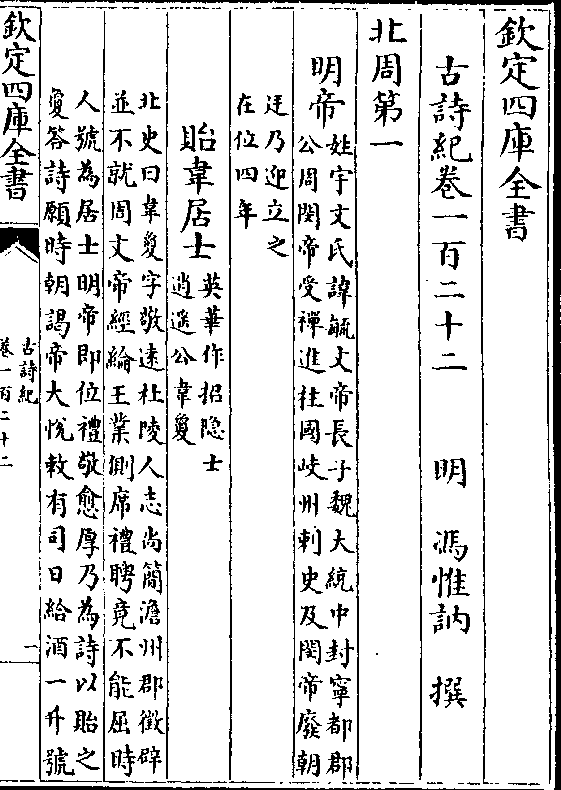 欽定四庫全書
古詩紀卷一百二十二　　明　馮惟訥　撰
北周第一
明帝
姓宇文氏諱毓文帝長子魏大統中封寧都郡
公周閔帝受禪進柱國岐州刺史及閔帝廢朝
廷乃迎立之
在位四年
貽韋居士
英華作招隐士
逍遥公韋夐
北史曰韋夐字敬遠杜陵人志尚簡澹州郡徵辟
並不就周文帝經綸王業側席禮聘竟不能屈時
人號為居士明帝即位禮敬愈厚乃為詩以貽之
夐答詩願時朝謁帝大悅敕有司日給酒一升號
欽定四庫全書
古詩紀
卷一百二十二
一